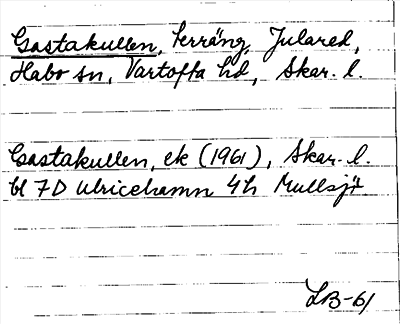 Gastakullen, terräng, Julared,
Habo sn, Vartofta hd, Skar. l.
Gastakullen, ek (1961), Skar. l.
bl 7D Ulricehamn 4h Mullsjö
LB-61